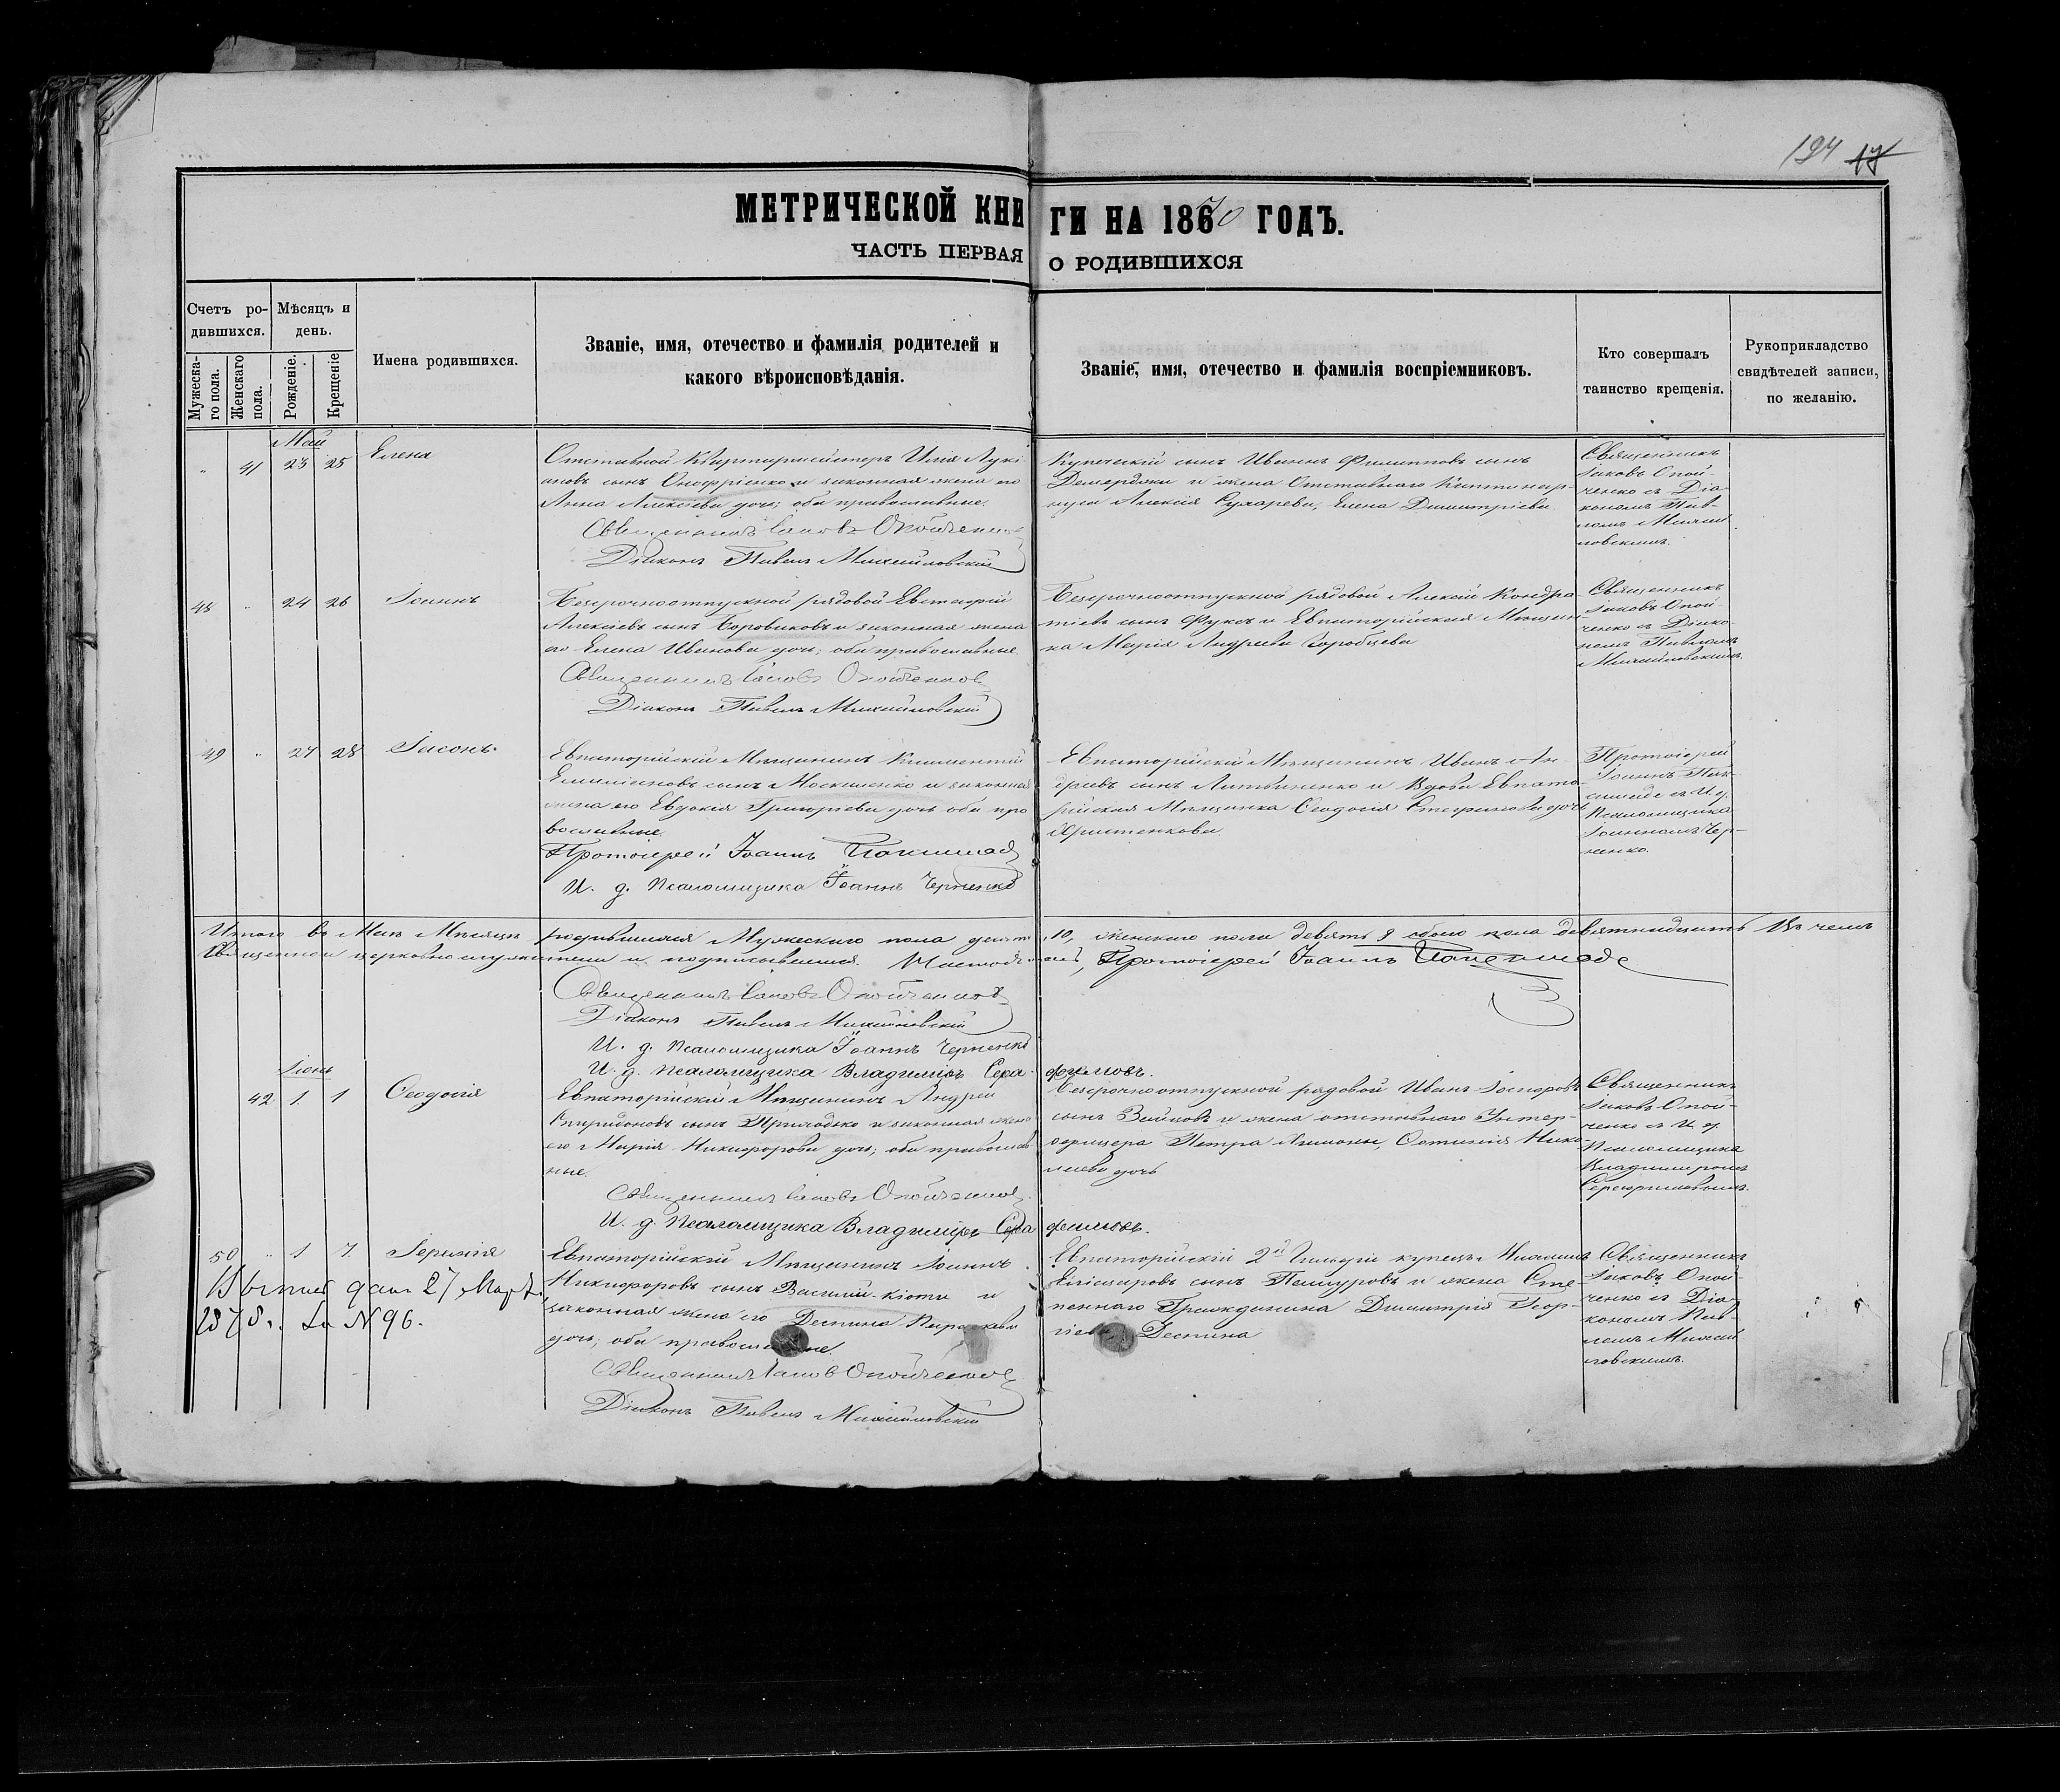 194 17
МЕТРИЧЕСКОЙ КНИГИ НА 1870 ГОДЪ.
ЧАСТЬ ПЕРВАЯ О РОДИВШИХСЯ
Счетъ ро-
дившихся.
Мужеска-
го пола.
Женскаго
пола.
Мѣсяцъ и
день.
Рожденіе.
Крещеніе
Имена родившихся.
Званіе, имя, отечество и фамилія родителей и
какого вѣроисповѣданія.
Званіе, имя, отечество и фамилія воспріемниковъ.
Кто совершалъ
таинство крещенія.
Рукоприкладство
свидѣтелей записи,
по желанію.
Май
" 41 23 25 Елена
Отставной Квартирмейстеръ Илія Луки-
ановъ сынъ Онофріенко и законная жена его
Анна Алексіева дочь; оба православные.
Священникъ Іаковъ Опойченко
Діаконъ Павелъ Михайловскій
Купеческій сынъ Иванъ Филипповъ сынъ
Демерджи и жена Отставнаго
Алексія Сухарева, Елена Димитріева
Священникъ
Іаковъ Опой-
ченко съ Діа-
кономъ Пав-
ломъ Михай-
ловскимъ.
48 " 24 26 Іоаннъ
Безсрочноотпускной рядовой Евстафій
Алексіевъ сынъ Боровиковъ и законная жена
его Елена Иванова дочь; оба православные.
Священникъ Іаковъ Опойченко
Діаконъ Павелъ Михайловскій
Безсрочноотпускной рядовой Алексій Кондра-
тіевъ сынъ Фуксъ и Евпаторійская Мѣщан-
ка Марія Андреева Горобцева
Священникъ
Іаковъ Опой-
ченко съ Діако-
номъ Павломъ
Михайловскимъ.
49 " 27 28 Іасонъ
Евпаторійскій Мѣщанинъ Климентій
Емиліановъ сынъ Москаленко и законная
жена его Евдокія Григорьева дочь оба пра
вославные.
Протоіерей Іоаннъ
И. д. Псаломщика Іоаннъ Черненко
Евпаторійскій Мѣщанинъ Иванъ Ан-
дреевъ сынъ Литвиненко и Вдова Евпато-
рійская Мѣщанка Ѳеодосія Стефанова дочь
Христенкова.
Протоіерей
Іоаннъ
съ И. д.
Псаломщика
Іоанномъ Чер-
ненко.
Итого въ Маѣ Мѣсяцѣ родившихся Мужескаго пола десять 10, женскаго пола девять 9 обоего пола девятнадцать Въ чемъ
Священно и церковнослужители и подписываемся. Протоіерей Іоаннъ
Священникъ Іаковъ Опойченко
Діаконъ Павелъ Михайловскій
И. д. Псаломщика Іоаннъ Черненко
И. д. Псаломщика Владиміръ Серафимовъ.
Іюнь
42 1 1 Ѳеодосія
Евпаторійскій Мѣщанинъ Андрей
Спиридоновъ сынъ Приходько и законная жена
его Марія Никифорова дочь; оба православ
ные.
Священникъ Іаковъ Опойченко
И. д. Псаломщика Владиміръ Серафимовъ.
Безсрочноотпускной рядовой Иванъ
сынъ и жена отставнаго Унтер-
офицера Петра Нико-
лаева дочь
Священникъ
Іаковъ Опой-
ченко съ И. д.
Псаломщика
Владиміромъ
Серафимовымъ.
50 " 1 7
Евпаторійскій Мѣщанинъ Іоаннъ
Никифоровъ сынъ Василий-Кіоти и
законная жена его Деспина
дочь; оба православные.
Священникъ Іаковъ Опойченко
Діаконъ Павелъ Михайловскій
27 Марта
1878 г. За N 96.
Евпаторійскій 2й Гильдіи купецъ
сынъ и жена Сте-
пеннаго Гражданина Димитрія Геор-
гіева Деспина
Священникъ
Іаковъ Опой-
ченко съ Діа-
кономъ Пав-
ломъ Михай-
ловскимъ.